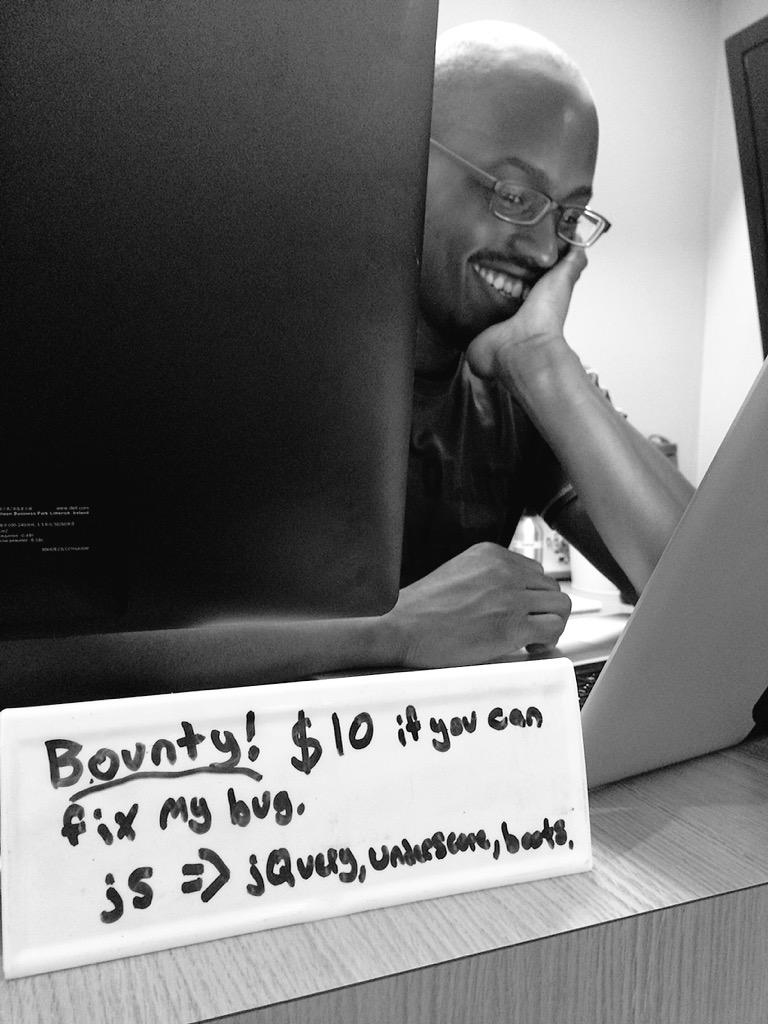 Bounty! $10 if you can
fix my bug.
js => jQuery, underscore, boots.
www.dell.com
Business Park Limerick Ireland